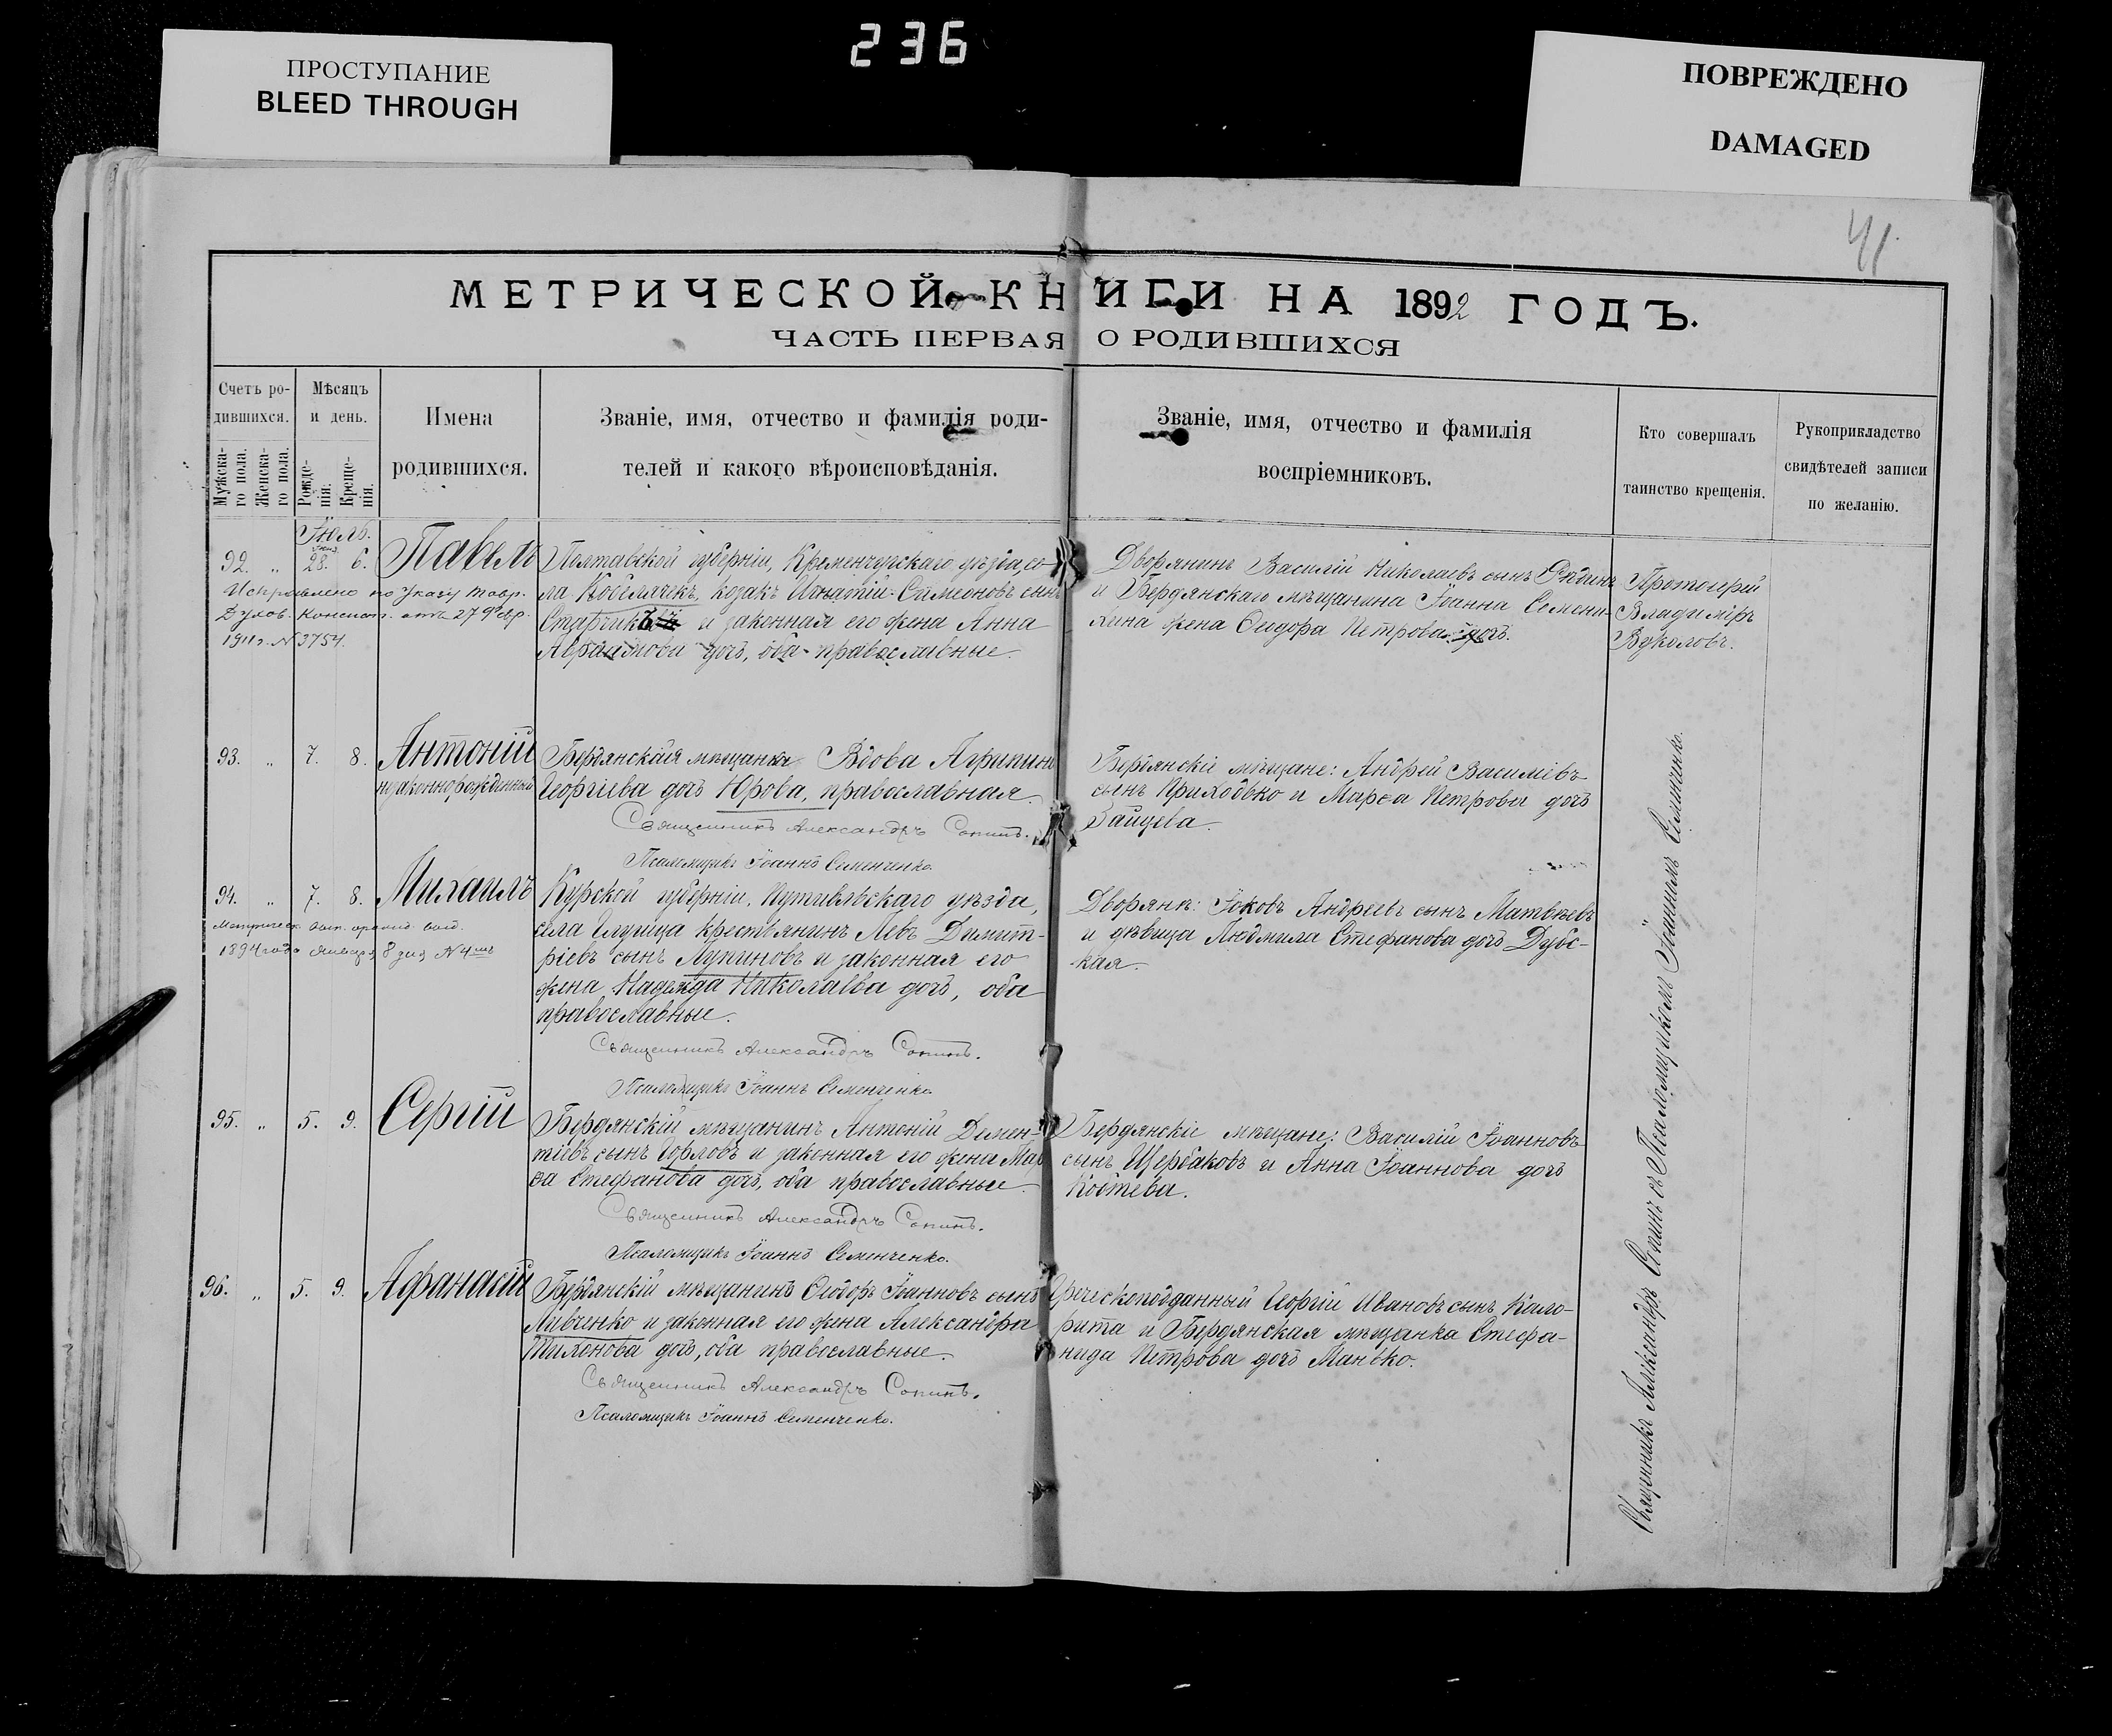 236
ПРОСТУПАНИЕ
BLEED THROUGH
ПОВРЕЖДЕНО
DAMAGED
41
МЕТРИЧЕСКОЙ КНИГИ НА 1892 ГОДЪ.
ЧАСТЬ ПЕРВАЯ О РОДИВШИХСЯ
Счетъ ро-
дившихся.
Мужска-
го пола.
Женска-
го пола.
Мѣсяцъ
и день.
Рожде-
нія.
Креще-
нія.
Имена
родившихся.
Званіе, имя, отчество и фамилія роди-
телей и какого вѣроисповѣданія.
Званіе, имя, отчество и фамилія
воспріемниковъ.
Кто совершалъ
таинство крещенія.
Рукоприкладство
свидѣтелей записи
по желанію.
Іюль.
92. „ 28. 6. Павелъ
Исправлено по указу Тавр.
Духов. Консист. отъ 27 Февр.
1911 г. № 3754.
Полтавской губерніи, Кременчугскаго уѣзда, се-
ла Кобелячекъ, козакъ Игнатій Симеоновъ сынъ
и законная его жена Анна
Авраамова дочь, оба православные.
Дворянинъ Василій Николаевъ сынъ
и Бердянскаго мѣщанина Іоанна Семени-
хина жена Ѳеодора Петрова дочь.
Протоіерей
Владиміръ
Вуколовъ.
93. „ 7. 8. Антоній
незаконнорожденный
Бердянская мѣщанка Вдова Агрипина
Георгіева дочь Юрова, православная.
Священникъ Александръ Сопинъ.
Псаломщикъ Іоаннъ Семенченко.
Бердянскіе мѣщане: Андрей Василіевъ
сынъ Приходько и Марѳа Петрова дочь
Зайцева.
94. „ 7. 8. Михаилъ
Метрическ. вып. выд.
1894 года Января 8 дня № 4
Курской губерніи, Путивльскаго уѣзда,
села Глушца крестьянинъ Левъ Димит-
ріевъ сынъ Лупиновъ и законная его
жена Надежда Николаева дочь, оба
православные.
Священникъ Александръ Сопинъ.
Псаломщикъ Іоаннъ Семенченко.
Дворяне: Іаковъ Андреевъ сынъ Матвѣевъ
и дѣвица Людмила Стефанова дочь Дубс-
кая.
95. „ 5. 9. Сергій
Бердянскій мѣщанинъ Антоній Демен-
тіевъ сынъ Горловъ и законная его жена Мар-
ѳа Стефанова дочь, оба православные.
Священникъ Александръ Сопинъ.
Псаломщикъ Іоаннъ Семенченко.
Бердянскіе мѣщане: Василій Іоанновъ
сынъ Щербаковъ и Анна Іоаннова дочь
Коктева.
96. „ 5. 9. Афанасій
Бердянскій мѣщанинъ Ѳеодоръ Іоанновъ сынъ
Левченко и законная его жена Александра
Тихонова дочь, оба православные.
Священникъ Александръ Сопинъ.
Псаломщикъ Іоаннъ Семенченко.
Греческоподданный Георгій Ивановъ сынъ Кало-
рита и Бердянская мѣщанка Стефа-
нида Петрова дочь Манько.
Священникъ Александръ Сопинъ съ Псаломщикомъ Іоанномъ Семенченко.